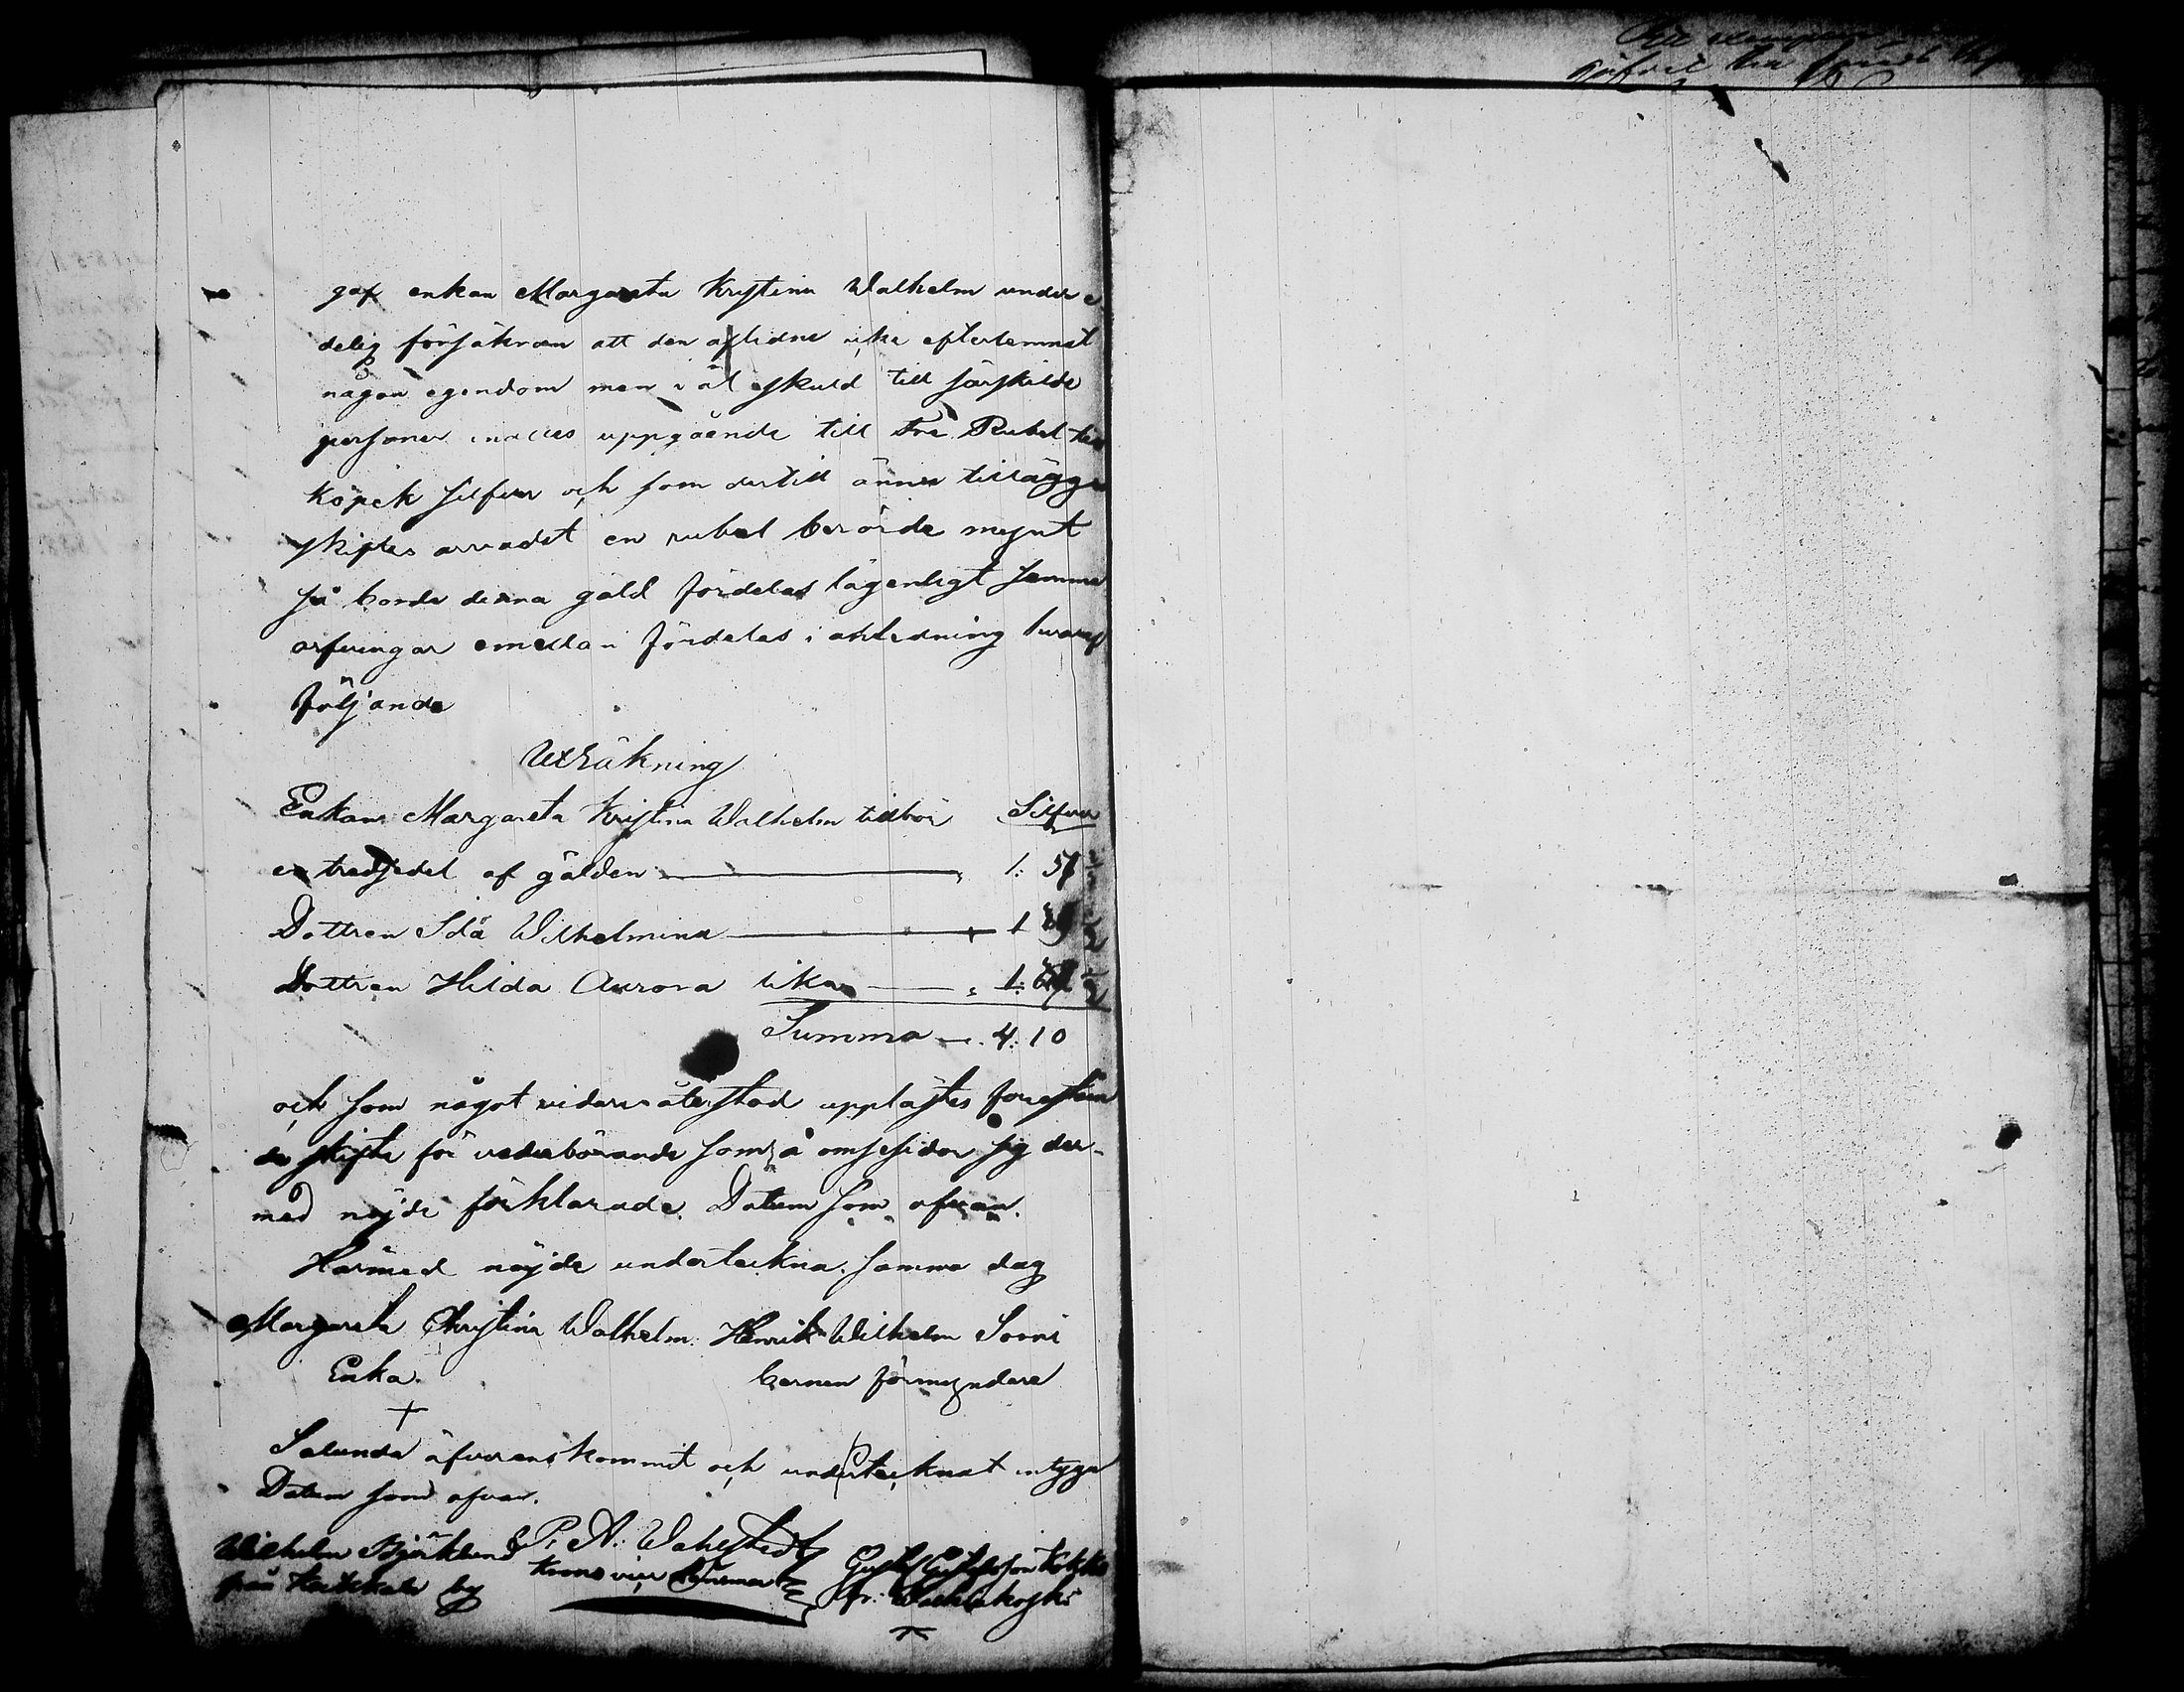 gaf enkan Margareta Kristina Walhelm under e
delig försäkran att den aflidne icke efterlemnat
någon egendom men väl skuld till särskilde
personer uppgående till Tre Rubel tio
köpek silfver och som dertill ännu tillägges
skiftes arvadet en rubel berörde mynt
så borde denna gäld fördelas lagenligt samma
arfvingar emellan fördelas i anledning hvaraf
följande
Uträkning
Enkan Margareta Kristina Walhelm tillbör Silfver
en tredjedel af gälden 1: 57
Dottren Ida Wilhelmina 1
Dottren Hilda Aurora lika 1:
Summa 4: 10
och som något vidare återstod upplästes föreståen
de skifte för vederbörande som å ömsesidor sig der-
med nöjde förklarade. Datum som ofvan.
Härmed nöjde underteckna samma dag
Margareta Christina Walhelm. Henrik Wilhelm Sorri
Enka. barnen förmyndare
+
Salunda öfverenskommit och undertecknat intyga
Datum som ofvan.
Wilhelm Björklund P. A. Wahlstedt Gustaf Gustafsson Kokko
från by Krono länsman fr. Wachlakoski